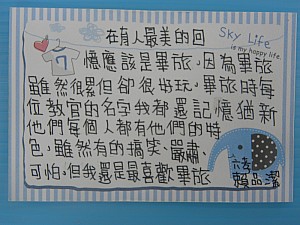 在有人最美的回
SKY LiFE
is my happy life
7
憶應該是畢旅,因為畢旅
雖然很累但卻很好玩,畢旅時每
位教官的名字我都還記憶猶新
他們每個人都有他們的特
色,雖然有的搞笑、嚴肅
可怕,但我還是最喜歡畢旅
六孝
賴品潔